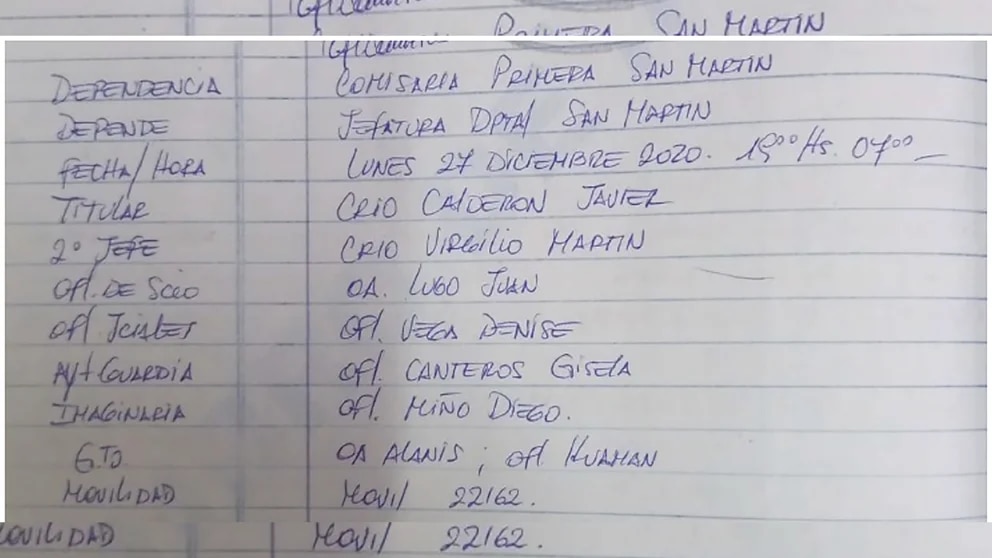 PRIMERA SAN MARTIN
DEPENDENCIA COMISARIA PRIMERA SAN MARTIN
DEPENDE JEFATURA DPTAL SAN MARTIN
FECHA/HORA LUNES 27 DICIEMBRE 2020. 19⁰⁰ Hs. 07⁰⁰
TITULAR CRIO CALDERON JAVIER
2° JEFE CRIO VIRGILIO MARTIN
OFL. DE Scio OA. LUGO JUAN
OFL JCIALES OFL. VEGA DENISE
Ay+ GUARDIA OFL. CANTEROS GISELA
IMAGINARIA OFL. MIÑO DIEGO.
G.T.O OA ALANIS ; OFL HUAMAN
MOVILIDAD MOVIL 22162.
MOVILIDAD MOVIL 22162.